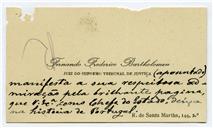 Fernando Frederico Bartholomeu
JUIZ DO SUPREMO TRIBUNAL DE JUSTIÇA (aposentado)
manifesta a sua respeitosa ad-
miração pela brilhante pagina,
que V. Ex.ª como Chefe do Estado, deixa
na historia de Portugal.
R. de Santa Martha, 145, 2.º